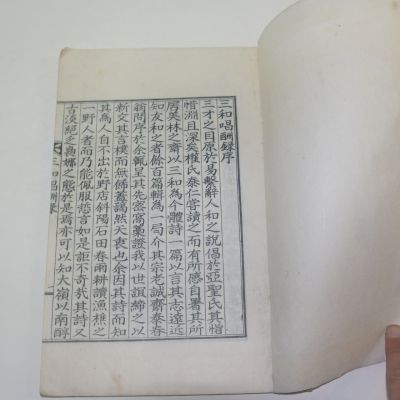 三和唱酬錄序
三才之目原於易繫辭人和之說倡於亞聖氏其恉
惜淵且深矣權氏泰仁嘗讀之而有所感自署其所
居矣林之齋以三和爲个體詩一篇以言其志遠近
知友和之者餘百篇輯爲一局介其宗老誠齋泰春
翁問序於余輒呈其先密窩藁證我以世誼締之以
新文其言樸而無餙蓋藹然天衷也余因其詩而知
其爲人自不出於野店斜陽石田春雨耕讀漁樵之
一野人者而乃能佩服恉言如是詎不奇哉其詩又
古淡絕乏嫋娜之態於是焉亦可以知大嶺以南醇
三和唱酬錄